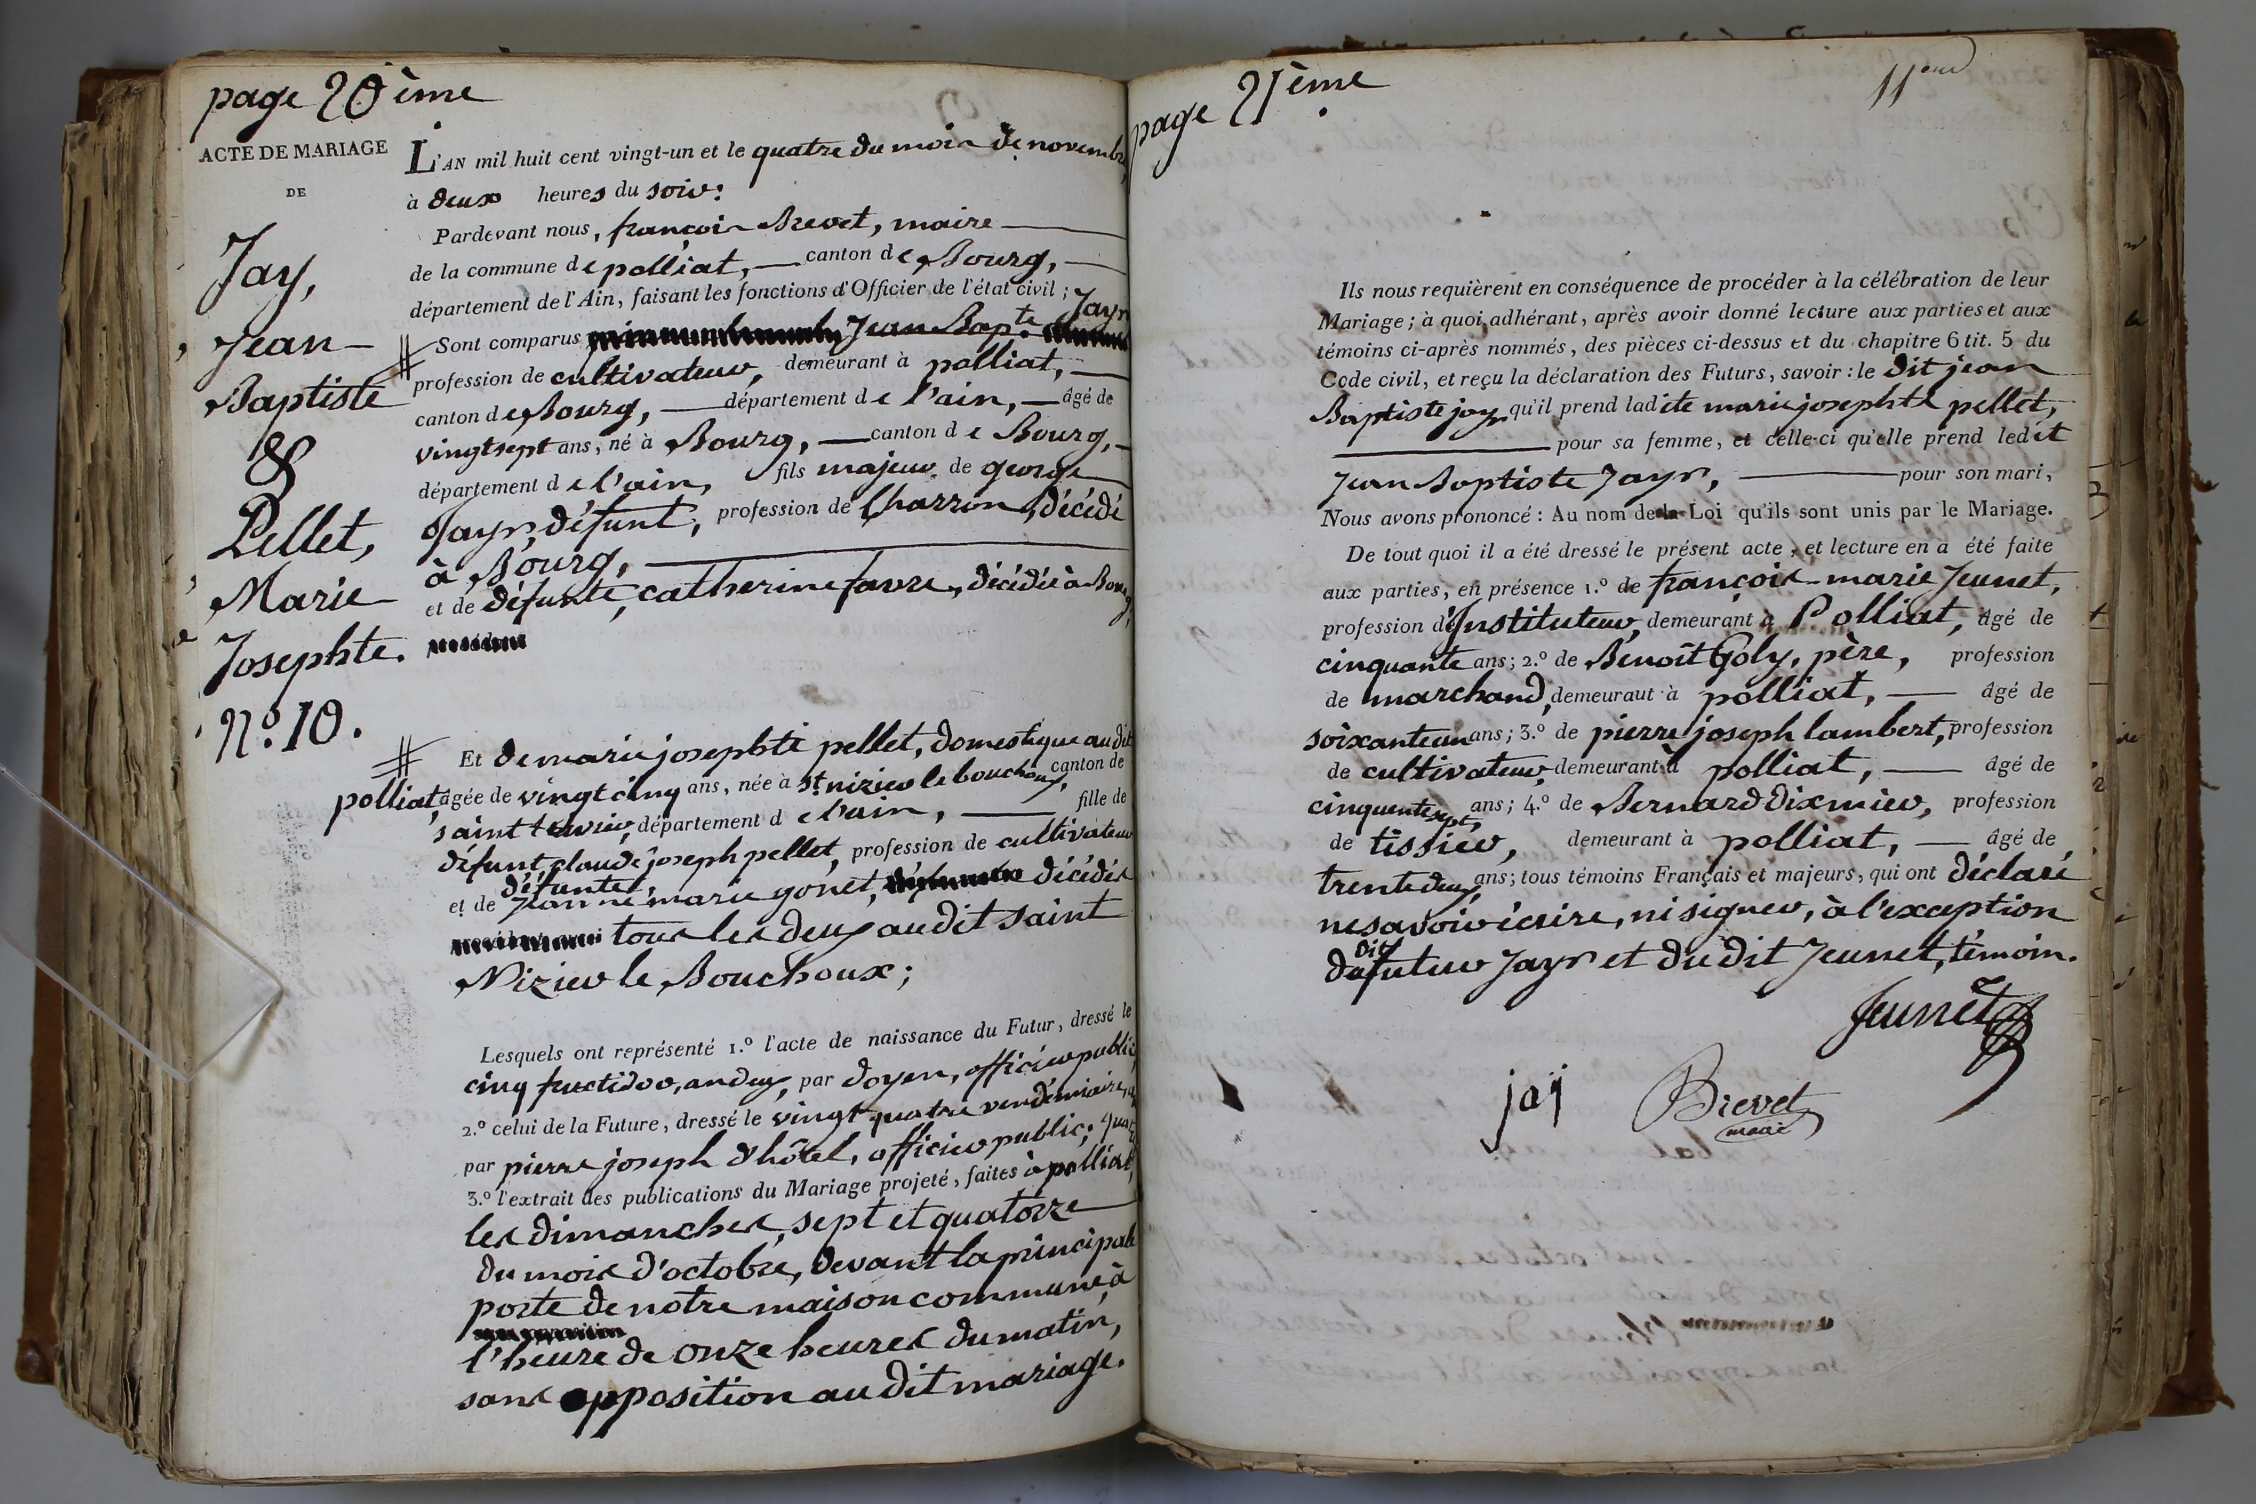 page 20ème
ACTE DE MARIAGE
DE
Jay,
Jean-
Baptiste
&
Pellet,
Marie
Josephte.
N.º 10.
L'AN mil huit cent vingt-un et le quatre du mois de novembre,
à deux heures du soir.
Pardevant nous, françois Brevet, maire
de la commune de polliat, canton de Bourg,
département de l'Ain, faisant les fonctions d'Officier de l'état civil;
Sont comparus Jean Bap.te Jayr
profession de cultivateur, demeurant à polliat,
canton de Bourg, département de l'ain, âgé de
vingt sept ans, né à Bourg, canton de Bourg,
département de l'ain, fils majeur de george
Jayr, défunt, profession de Charron, décédé
à Bourg,
et de défunte, catherine favre, décédée à Bourg,
Et de marie josephte pellet, domestique au dit
polliat, âgée de vingt cinq ans, née à st. nizier le bouchoux, canton de
saint trivier, département de l'ain, fille de
défunt, claude joseph pellet, profession de cultivateur
et de défunte, Jeanne marie gonet, décédés
tous les deux au dit saint
Nizier le Bouchoux;
Lesquels ont représenté 1.º l'acte de naissance du Futur, dressé le
cinq fructidor, an deux, par doyen, officier public,
2.º celui de la Future, dressé le vingt quatre vendémiaire, an
quatre
par pierre joseph d'hôtel, officier public;
3.º l'extrait des publications du Mariage projeté, faites à polliat,
les dimanches, sept et quatorze
du mois d'octobre, devant la principale
porte de notre maison commune, à
l'heure de onze heures du matin,
sans opposition au dit mariage.
page 21ème
11eme
Ils nous requièrent en conséquence de procéder à la célébration de leur
Mariage; à quoi adhérant, après avoir donné lecture aux parties et aux
témoins ci-après nommés, des pièces ci-dessus et du chapitre 6 tit. 5 du
Code civil, et reçu la déclaration des Futurs, savoir: le dit jean
Baptiste jayr qu'il prend ladite marie josephte pellet,
pour sa femme, et celle-ci qu'elle prend ledit
Jean Baptiste Jayr, pour son mari,
Nous avons prononcé: Au nom de la Loi qu'ils sont unis par le Mariage.
De tout quoi il a été dressé le présent acte, et lecture en a été faite
aux parties, en présence 1.º de françois-marie Jeunet,
profession d'Instituteur, demeurant à Polliat, âgé de
cinquante ans; 2.º de Benoît Goly, père, profession
de marchand, demeuraut à polliat, âgé de
soixante un ans; 3.º de pierre joseph lambert, profession
de cultivateur, demeurant à polliat, âgé de
cinquante sept, ans; 4.º de Bernard dixmier, profession
de tissier, demeurant à polliat, âgé de
trente deux, ans; tous témoins Français et majeurs, qui ont déclaré
ne savoir écrire, ni signer, à l'exception
du dit futur Jayr et du dit Jeunet, témoin.
Jeunet
jaÿ
Brevet
maire